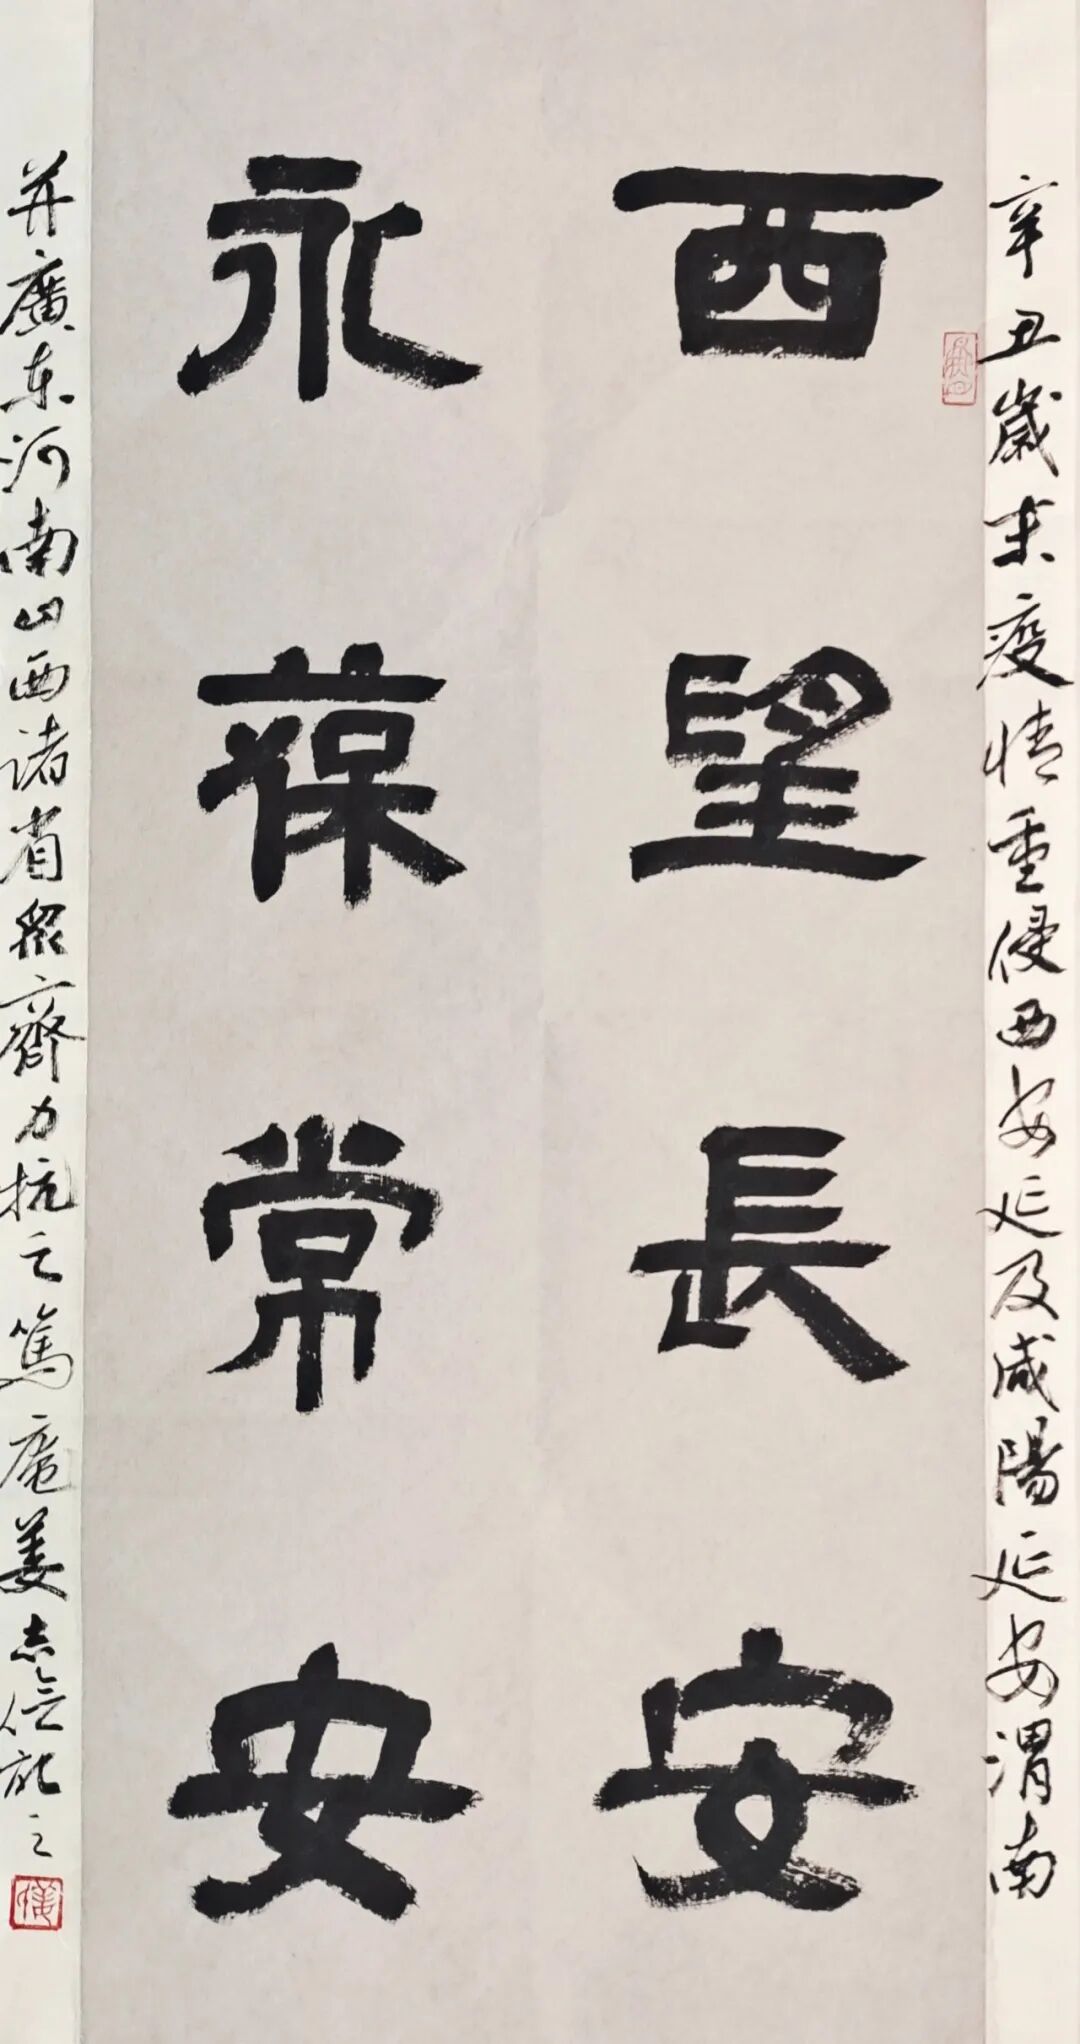 辛丑歲末疫情重侵西安延及咸陽延安渭南
西望長安
永葆常安
并廣东河南山西诸省眾齊力抗之篤庵姜志信記之